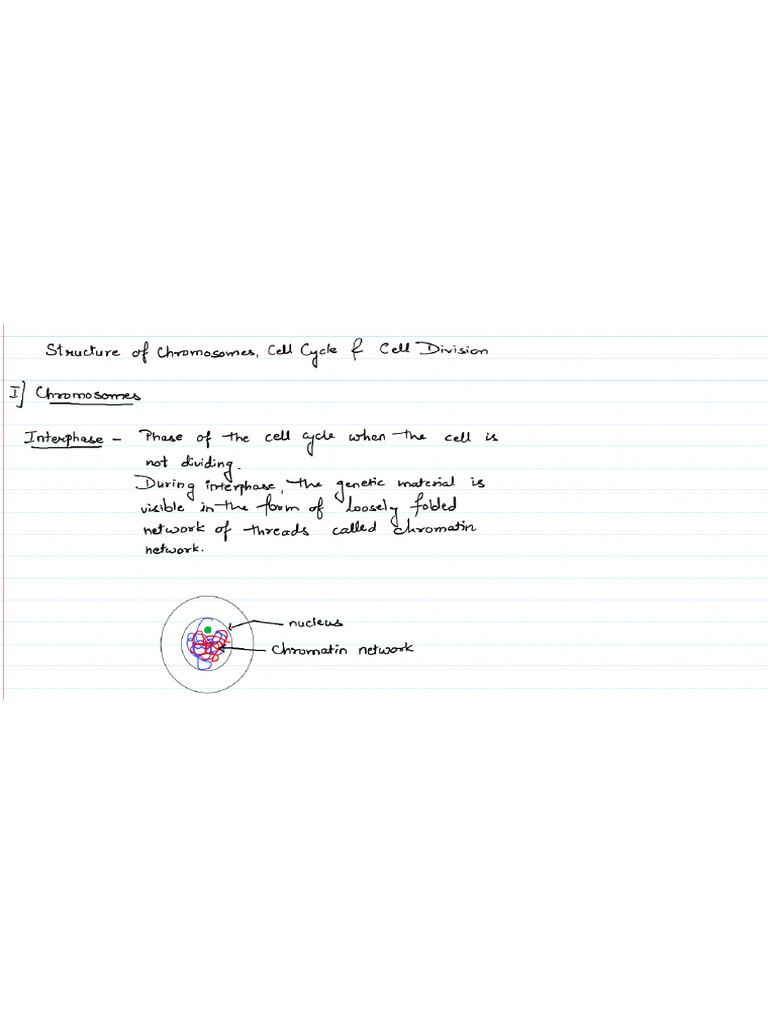 Structure of Chromosomes, Cell Cycle & Cell Division
I] Chromosomes
Interphase - Phase of the cell cycle when the cell is
not dividing.
During interphase, the genetic material is
visible in the form of loosely folded
network of threads called chromatin
network.
nucleus
Chromatin network